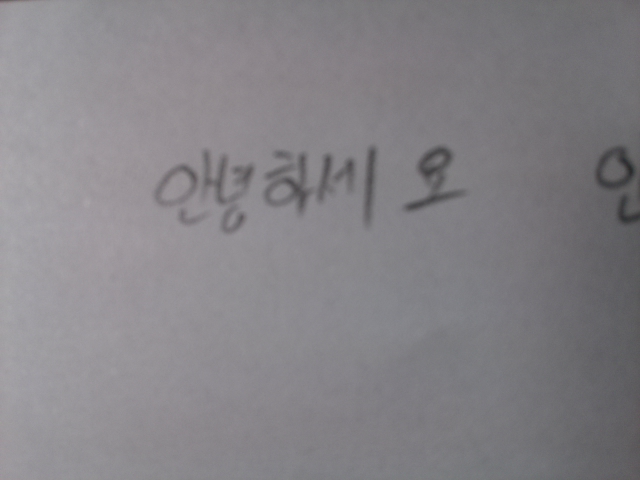 안녕하세요 안